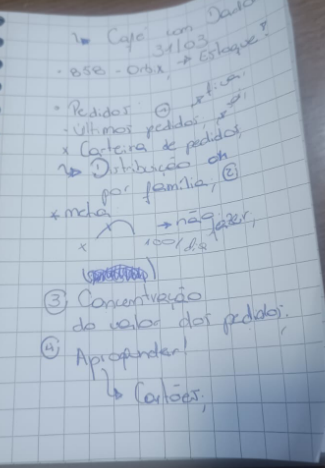 ↳ Café com
31/03
· BSB - Orbix, → Estoque?
· Pedidos:
- Últimos pedidos
x Carteira de pedidos,
↳ ① Distribuição
por família; ②
x meta
→ não fazer,
x 100/dia
③ Concentração
do valor dos pedidos.
④ Aprofundar!
↳ Cartões;